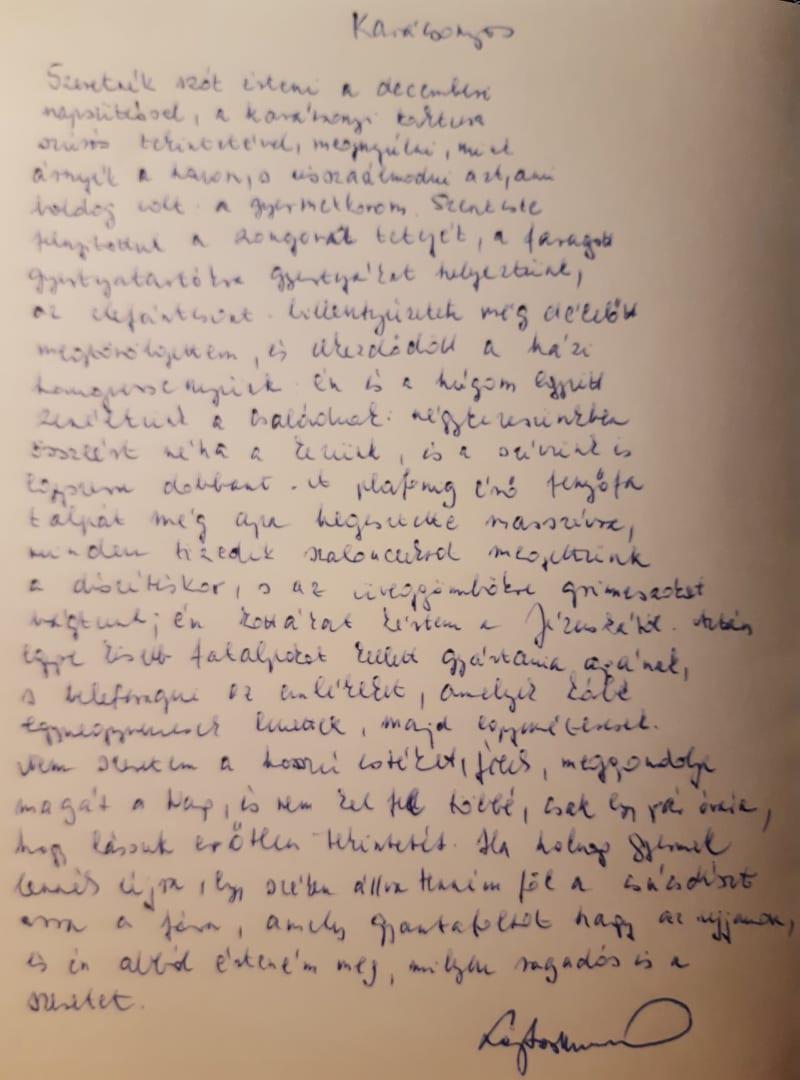 Karácsonyos
Szeretnék szót érteni a decemberi
napsütéssel, a karácsonyi kaktusz
szúrós tekintetével, megnyúlni, mint
árnyék a havon, s visszaálmodni azt, ami
boldog volt a gyermekkorom. Szenteste
felnyitottuk a zongorák tetejét, a faragott
gyertyatartókra gyertyákat helyeztünk,
az elefántcsont billentyűzetek még délelőtt
megtörölgettem, és elkezdődött a házi
hangversenyünk. Én és a húgom együtt
zenéltünk a családnak: négykezesünkben
összeért néha a kezünk, és a szívünk is
egyszerre dobbant. A plafonig érő fenyőfa
talpát még apa hegesztette masszívra,
minden tizedik szaloncukrot megettünk
a díszítéskor, s az üveggömbökre grimaszokat
vágtunk; én kottákat kértem a Jézuskától. Aztán
egyre kisebb fatalpakat kellett gyártania apának,
s belefaragni az emlékeket, amelyek
lettek, majd
Nem szeretem a hosszú estéket, félek, meggondolja
magát a Nap, és nem kel fel többé, csak egy pár órára,
hogy lássuk erőtlen tekintetét. Ha holnap gyermek
lennék újra, egy széken állva tenném föl a csúcsdíszt
arra a fára, amely gyantafoltot hagy az ujjamon,
és én abból érteném meg, milyen ragadós is a
szeretet.